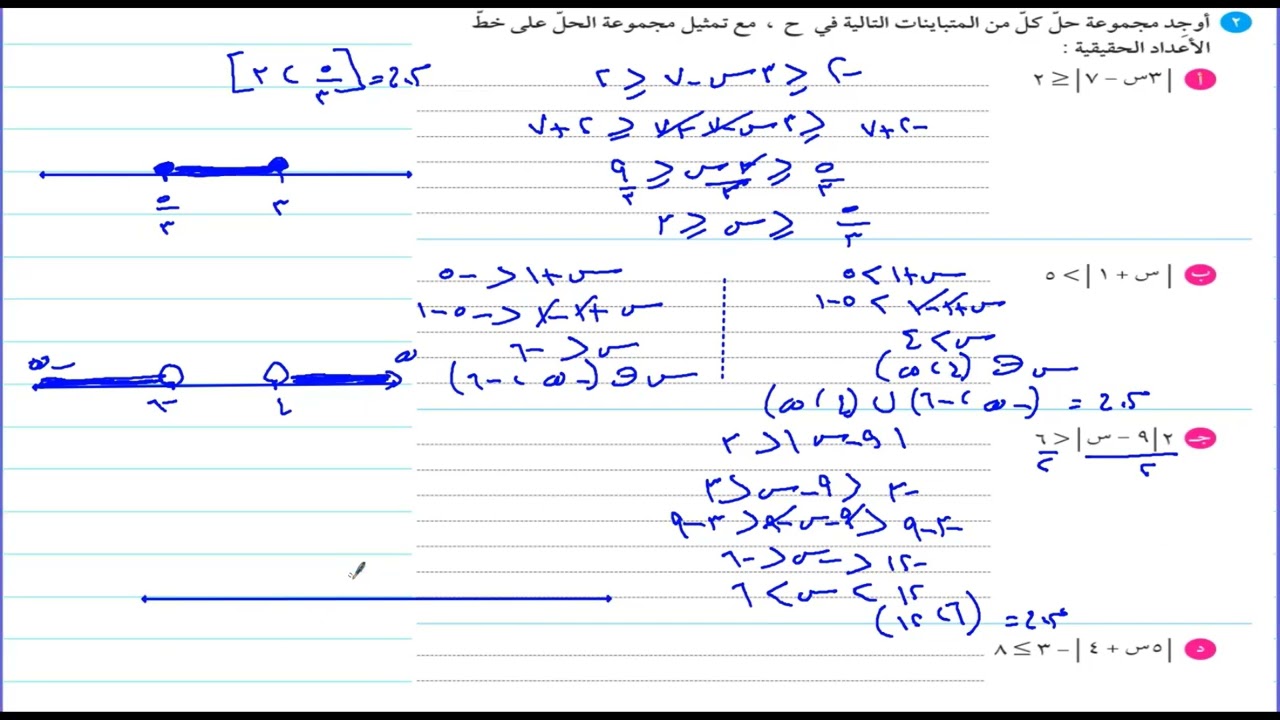 ٢ أوجد مجموعة حلّ كلّ من المتباينات التالية في ح ، مع تمثيل مجموعة الحلّ على خطّ
الأعداد الحقيقية :
أ |٣س – ٧| ≤ ٢
-٢ ≤ ٣س - ٧ ≤ ٢
-٢ + ٧ ≤ ٣س - ٧ + ٧ ≤ ٢ + ٧
٥/٣ ≤ ٣س/٣ ≤ ٩/٣
٥/٣ ≤ س ≤ ٣
م.ح = [٥/٣ ، ٣]
٥/٣ ٣
ب |س + ١| > ٥
س + ١ > ٥
س + ١ - ١ > ٥ - ١
س > ٤
س ∈ (٤ ، ∞)
س + ١ < -٥
س + ١ - ١ < -٥ - ١
س < -٦
س ∈ (-∞ ، -٦)
م.ح = (-∞ ، -٦) ∪ (٤ ، ∞)
-∞ ∞
-٦ ٤
جـ ٢|٩ – س| < ٦
٢ ٢
|٩ - س| < ٣
-٣ < ٩ - س < ٣
-٣ - ٩ < ٩ - س - ٩ < ٣ - ٩
-١٢ < -س < -٦
١٢ > س > ٦
م.ح = (٦ ، ١٢)
د |٥س + ٤| – ٣ ≥ ٨